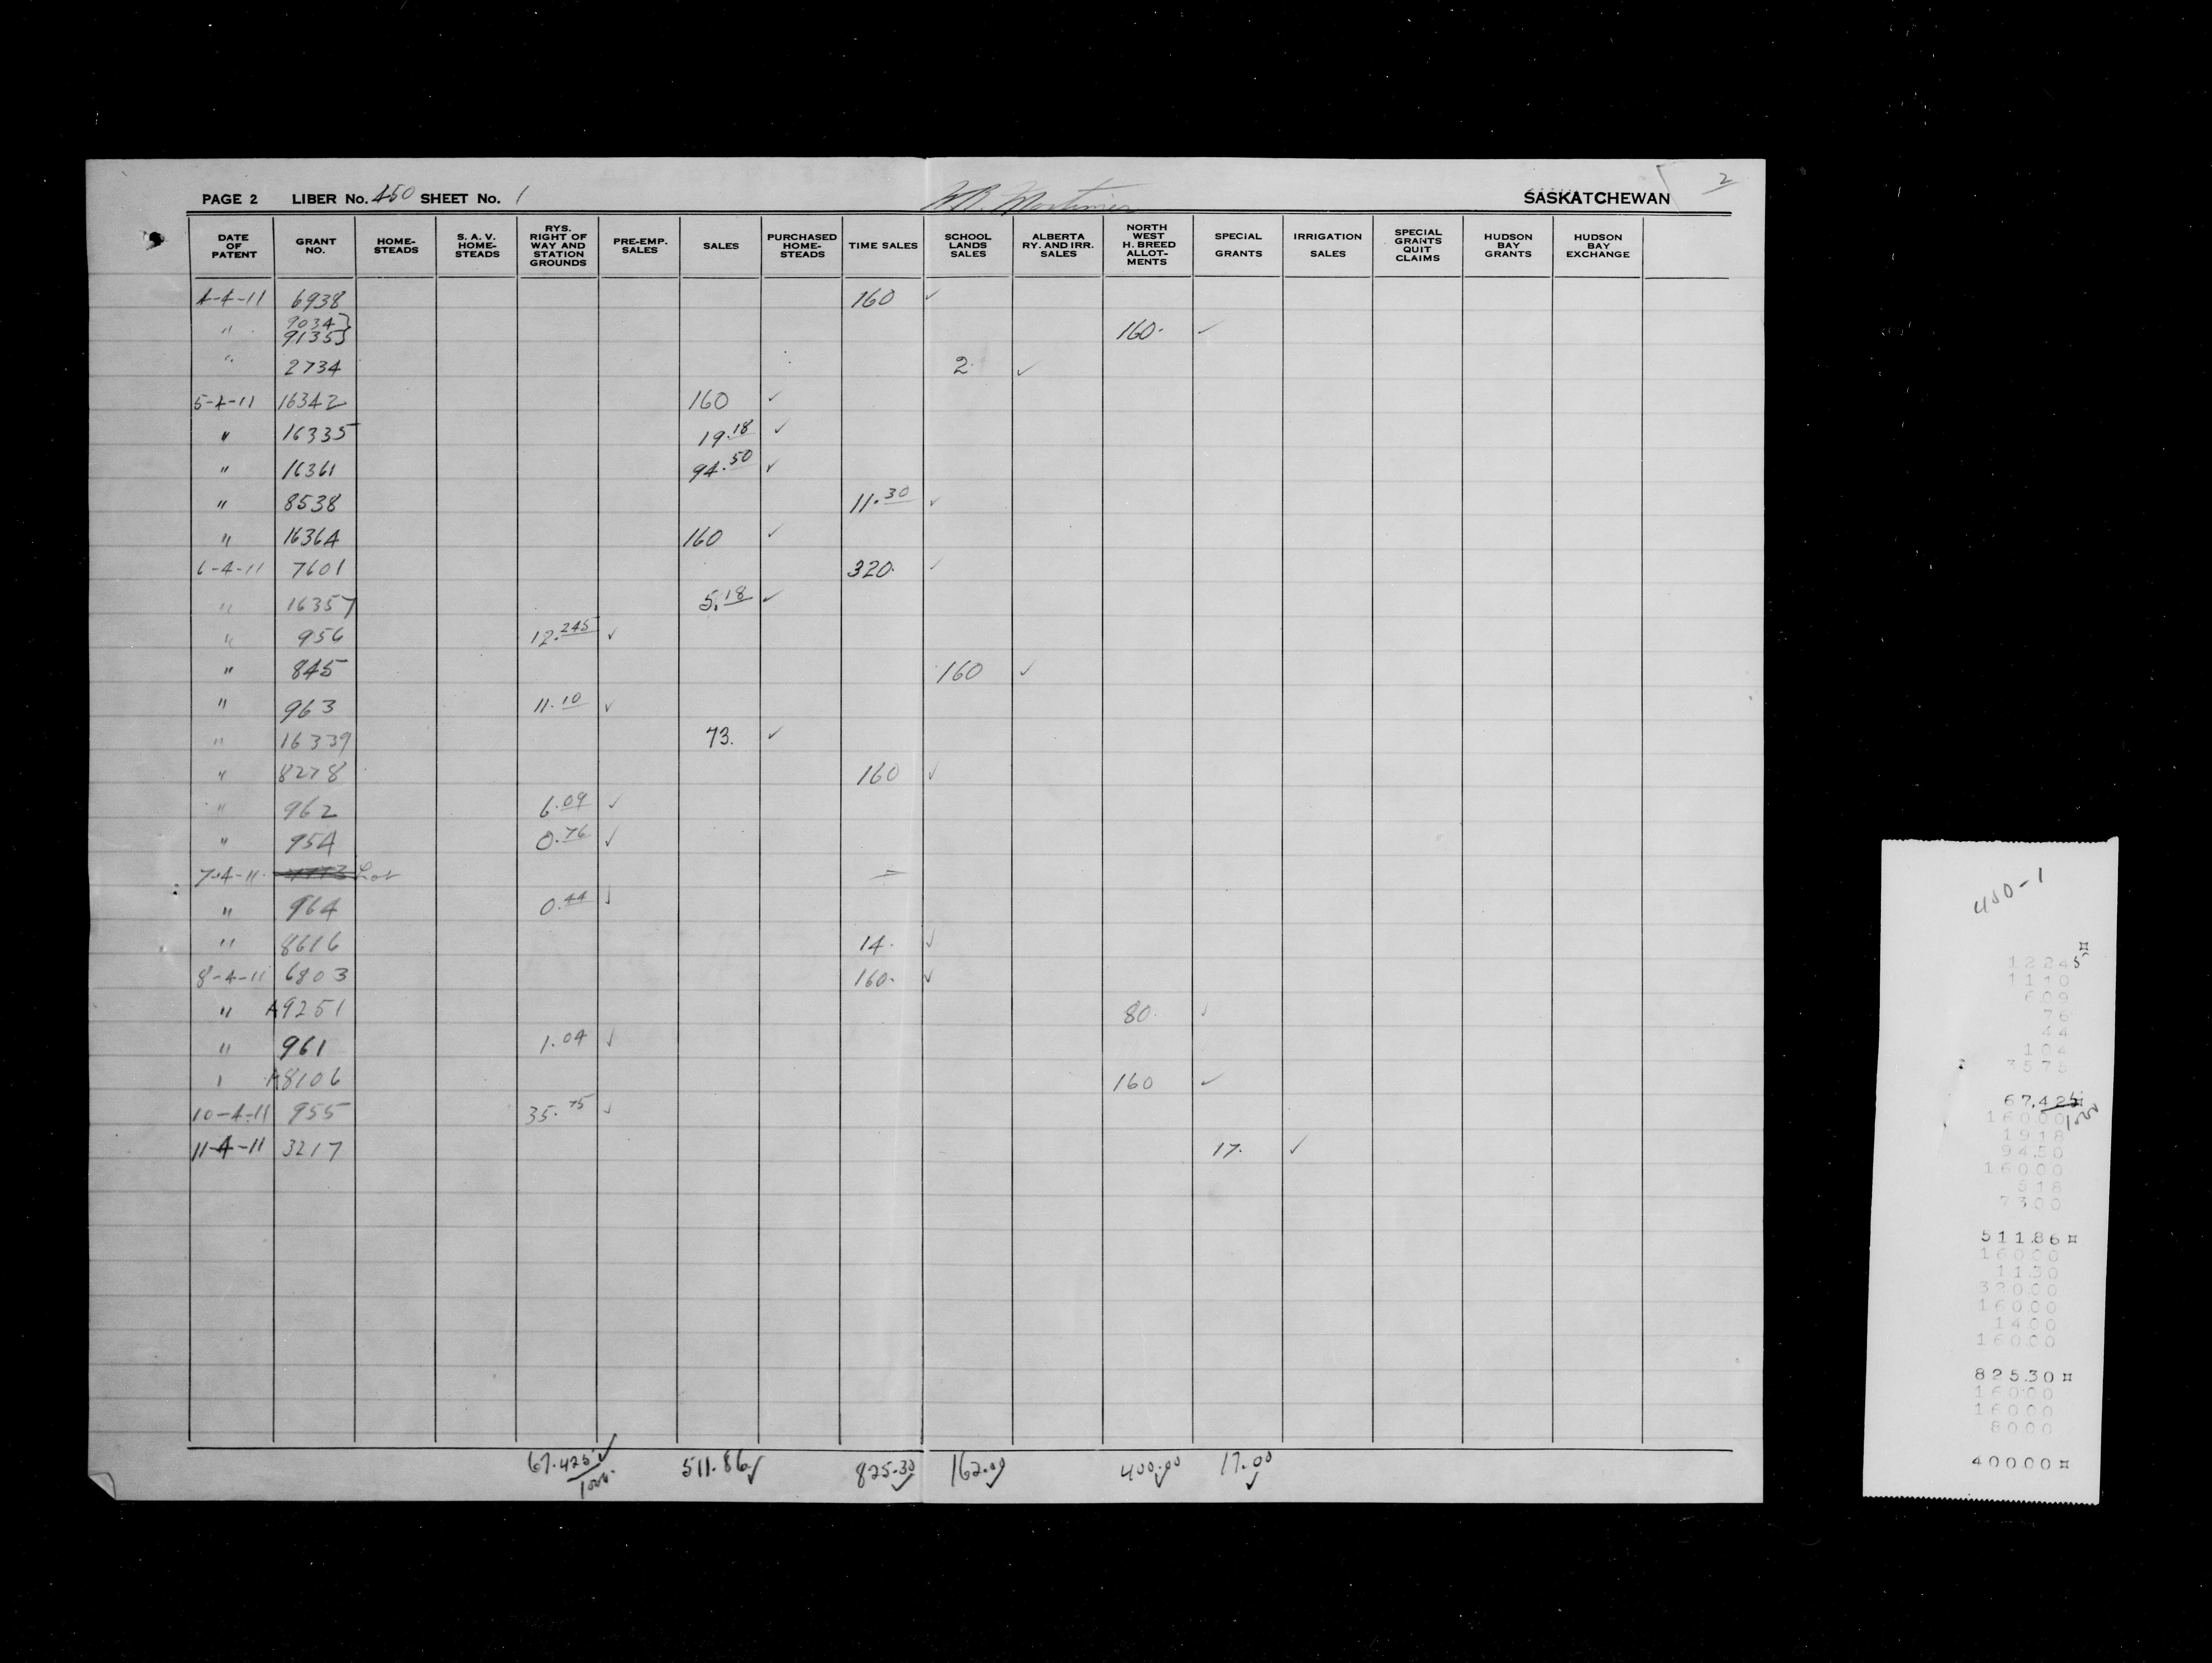 2
PAGE 2 LIBER No. 450 SHEET No. 1 W.R. Mortimer SASKATCHEWAN
DATE OF PATENT GRANT NO. HOME-STEADS S. A. V. HOME-STEADS RYS. RIGHT OF WAY AND STATION GROUNDS PRE-EMP. SALES SALES PURCHASED HOME-STEADS TIME SALES SCHOOL LANDS SALES ALBERTA RY. AND IRR. SALES NORTH WEST H. BREED ALLOT-MENTS SPECIAL GRANTS IRRIGATION SALES SPECIAL GRANTS QUIT CLAIMS HUDSON BAY GRANTS HUDSON BAY EXCHANGE
4-4-11 6938 160 ✓
" 9034}
9135} 160. ✓
" 2734 2. ✓
5-4-11 16342 160 ✓
" 16335 19.18 ✓
" 16361 94.50 ✓
" 8538 11.30 ✓
" 16364 160 ✓
6-4-11 7601 320. ✓
" 16357 5.18 ✓
" 956 12.245 ✓
" 845 160 ✓
" 963 11.10 ✓
" 16339 73. ✓
" 8278 160 ✓
" 962 6.09 ✓
" 954 0.76 ✓
7-4-11 Lot =
" 964 0.44 ✓
" 8616 14. ✓
8-4-11 6803 160. ✓
" A9251 80. ✓
" 961 1.04 ✓
" A8106 160 ✓
10-4-11 955 35.75 ✓
11-4-11 3217 17. ✓
67.425/1000 ✓ 511.86 ✓ 825.30 ✓ 162.00 ✓ 400.00 ✓ 17.00 ✓
450-1
¤
12245
11.10
6.09
76
44
1.04
35.75
67.425 ¤
1000
160.00
19.18
94.50
160.00
5.18
73.00
511.86 ¤
160.00
11.30
320.00
160.00
14.00
160.00
825.30 ¤
160.00
160.00
80.00
400.00 ¤